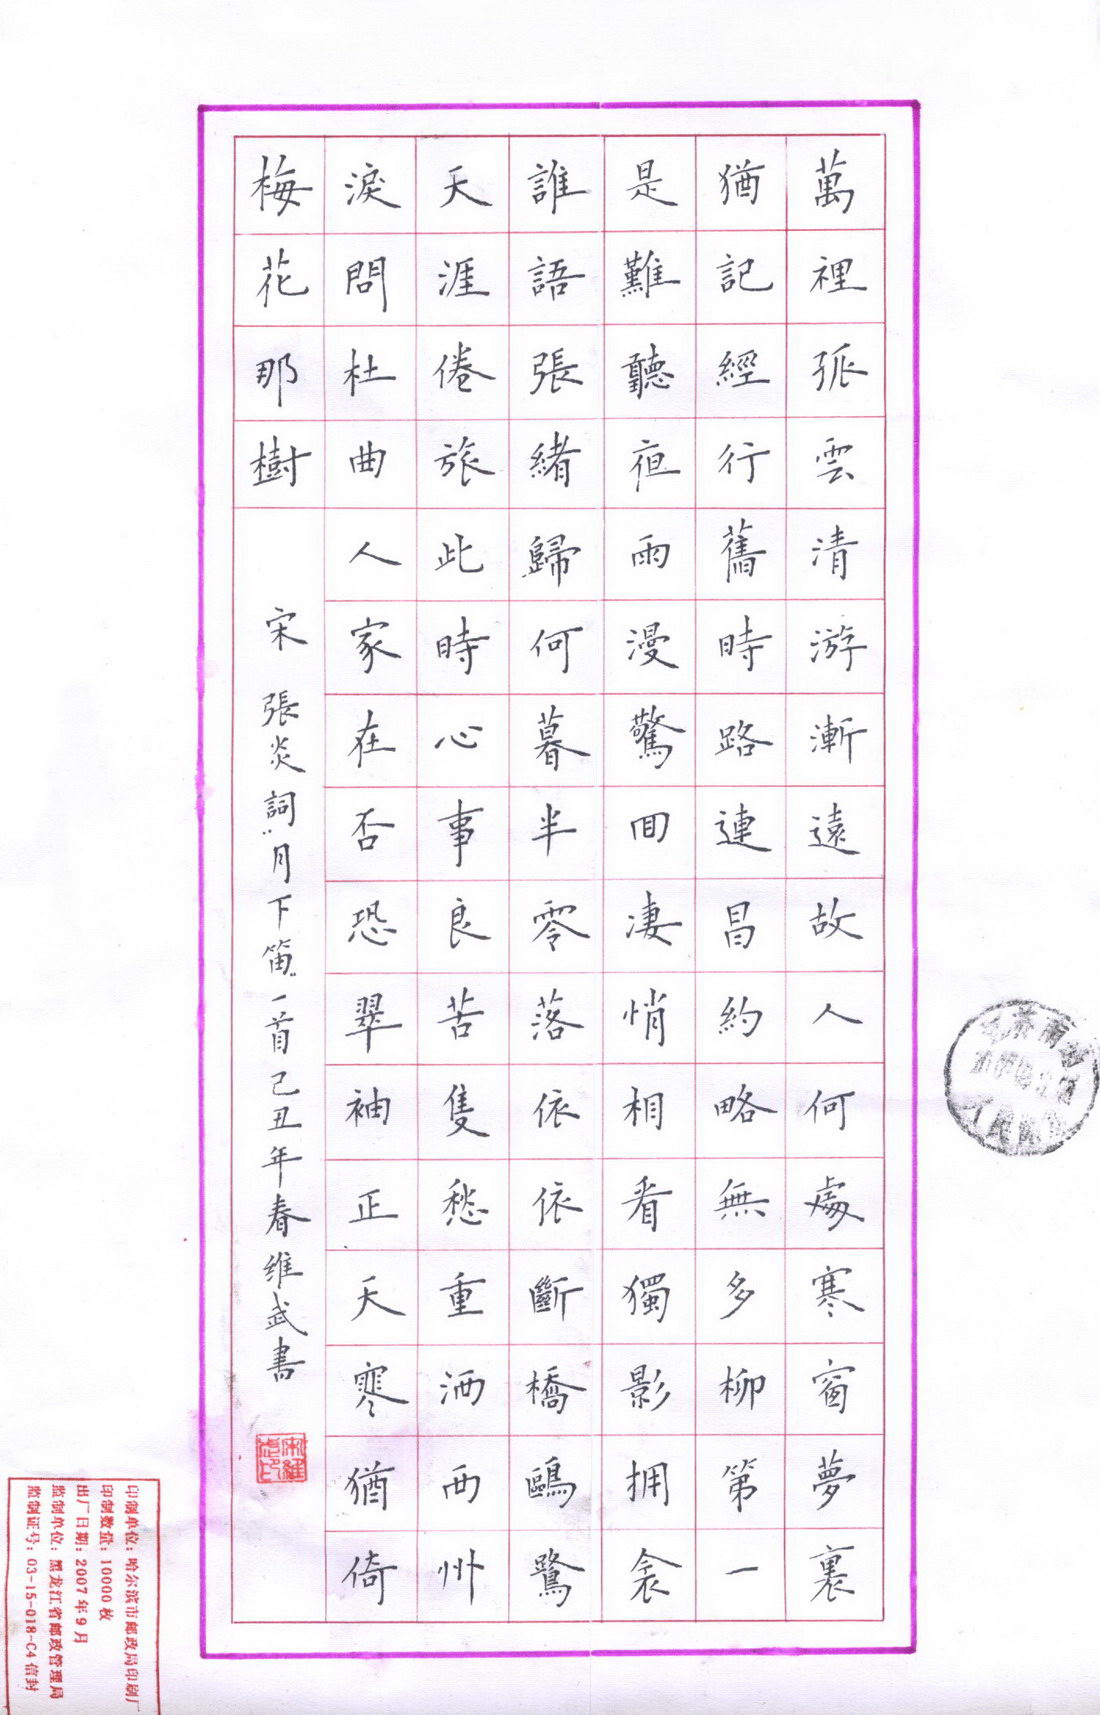 萬裡孤雲清游漸遠故人何處寒窗夢裏
猶記經行舊時路連昌約略無多柳第一
是難聽夜雨漫驚回淒悄相看獨影拥衾
誰語張緒歸何暮半零落依依斷橋鷗鷺
天涯倦旅此時心事良苦隻愁重洒西州
淚問杜曲人家在否恐翠袖正天寒猶倚
梅花那樹
宋 張炎詞"月下笛"一首己丑年春维武書
印制单位：哈尔滨市邮政局印刷厂
印制数量：10000枚
出厂日期：2007年9月
监制单位：黑龙江省邮政管理局
监制证号：03-15-018-C4信封